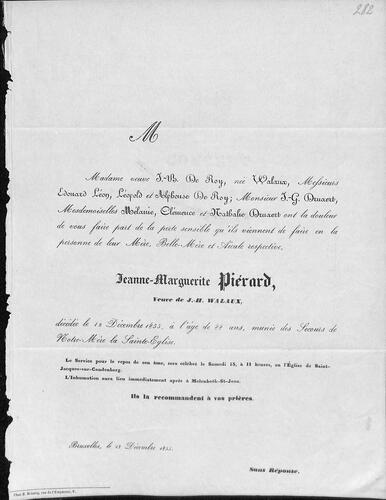 282
M
Madame veuve J.-B. De Roy, née Walaux, Messieurs
Edouard Léon, Léopold et Alphonse De Roy; Monsieur J.-G. Druaert,
Mesdemoiselles Mélanie, Clémence et Nathalie Druaert ont la douleur
de vous faire part de la perte sensible qu'ils viennent de faire en la
personne de leur Mère, Belle-Mère et Aïeule respective,
Jeanne-Marguerite Piérard,
Veuve de J.-H. WALAUX,
décédée le 12 Décembre 1855, à l'âge de ans, munie des Secours de
Notre-Mère la Sainte-Eglise.
Le Service pour le repos de son âme, sera célébré le Samedi 15, à 11 heures, en l'Église de Saint-
Jacques-sur-Caudenberg.
L'Inhumation aura lieu immédiatement après à Molenbeek-St-Jean.
Ils la recommandent à vos prières.
Bruxelles, le 12 Décembre 1855.
Sans Réponse.
rue de l'Empereur,